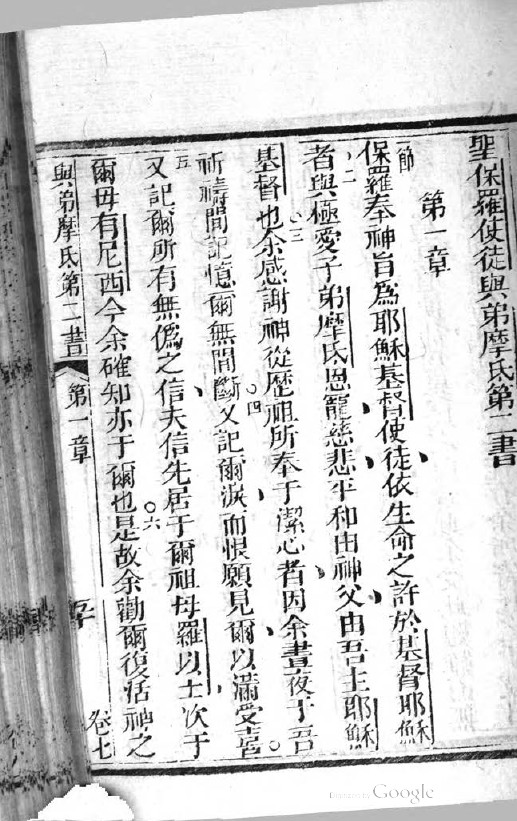 聖保羅使徒與弟摩氏第二書
第一章
節
保羅奉神旨爲耶穌基督使徒依生命之許於基督耶穌
二
者與極愛子弟摩氏恩寵慈悲平和由神父由吾主耶穌
三
基督也余感謝神從歷祖所奉于潔心者因余晝夜于吾
四
祈禱間記憶爾無間斷又記爾淚而恨願見爾以滿受喜
五
又記爾所有無僞之信夫信先居于爾祖母羅以士次于
六
爾母有尼西今余確知亦于爾也是故余勸爾復活神之
與弟摩氏第二書
第一章
卷七
Google